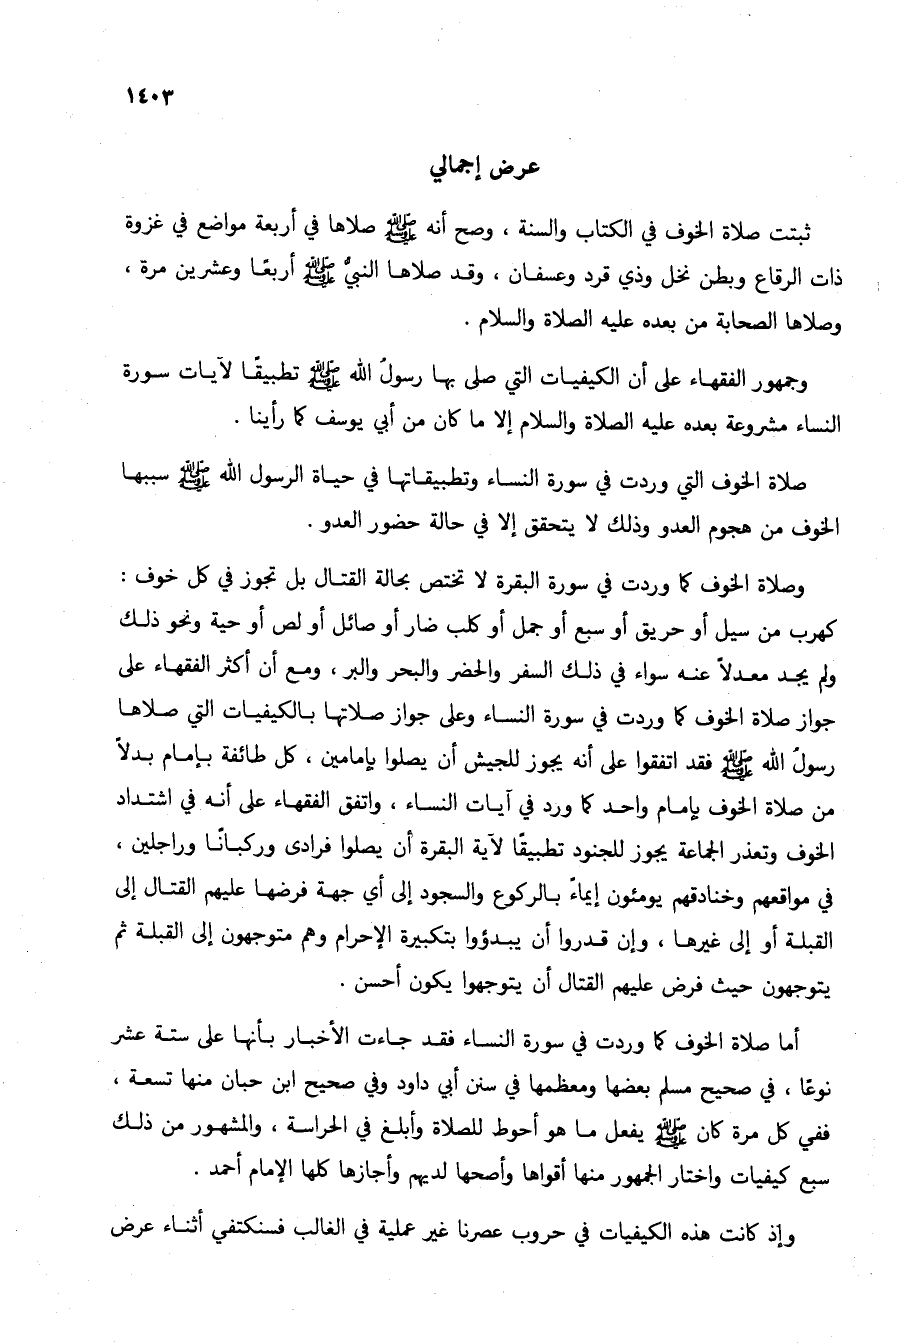 ١٤٠٣
عرض إجمالي
ثبتت صلاة الخوف في الكتاب والسنة ، وصح أنه ﷺ صلاها في أربعة مواضع في غزوة
ذات الرقاع وبطن نخل وذي قرد وعسفان ، وقد صلاها النبيُّ ﷺ أربعًا وعشرين مرة ،
وصلاها الصحابة من بعده عليه الصلاة والسلام .
وجمهور الفقهاء على أن الكيفيات التي صلى بها رسولُ الله ﷺ تطبيقًا لآيات سورة
النساء مشروعة بعده عليه الصلاة والسلام إلا ما كان من أبي يوسف كما رأينا .
صلاة الخوف التي وردت في سورة النساء وتطبيقاتها في حياة الرسول الله ﷺ سببها
الخوف من هجوم العدو وذلك لا يتحقق إلا في حالة حضور العدو .
وصلاة الخوف كما وردت في سورة البقرة لا تختص بحالة القتال بل تجوز في كل خوف :
كهرب من سيل أو حريق أو سبع أو جمل أو كلب ضار أو صائل أو لص أو حية ونحو ذلك
ولم يجد معدلاً عنه سواء في ذلك السفر والحضر والبحر والبر ، ومع أن أكثر الفقهاء على
جواز صلاة الخوف كما وردت في سورة النساء وعلى جواز صلاتها بالكيفيات التي صلاها
رسولُ الله ﷺ فقد اتفقوا على أنه يجوز للجيش أن يصلوا بإمامين ، كل طائفة بإمام بدلاً
من صلاة الخوف بإمام واحد كما ورد في آيات النساء ، واتفق الفقهاء على أنه في اشتداد
الخوف وتعذر الجماعة يجوز للجنود تطبيقًا لآية البقرة أن يصلوا فرادى وركبانًا وراجلين ،
في مواقعهم وخنادقهم يومئون إيماءً بالركوع والسجود إلى أي جهة فرضها عليهم القتال إلى
القبلة أو إلى غيرها ، وإن قدروا أن يبدؤوا بتكبيرة الإحرام وهم متوجهون إلى القبلة ثم
يتوجهون حيث فرض عليهم القتال أن يتوجهوا يكون أحسن .
أما صلاة الخوف كما وردت في سورة النساء فقد جاءت الأخبار بأنها على ستة عشر
نوعًا ، في صحيح مسلم بعضها ومعظمها في سنن أبي داود وفي صحيح ابن حبان منها تسعة ،
ففي كل مرة كان ﷺ يفعل ما هو أحوط للصلاة وأبلغ في الحراسة ، والمشهور من ذلك
سبع كيفيات واختار الجمهور منها أقواها وأصحها لديهم وأجازها كلها الإمام أحمد .
وإذ كانت هذه الكيفيات في حروب عصرنا غير عملية في الغالب فسنكتفي أثناء عرض